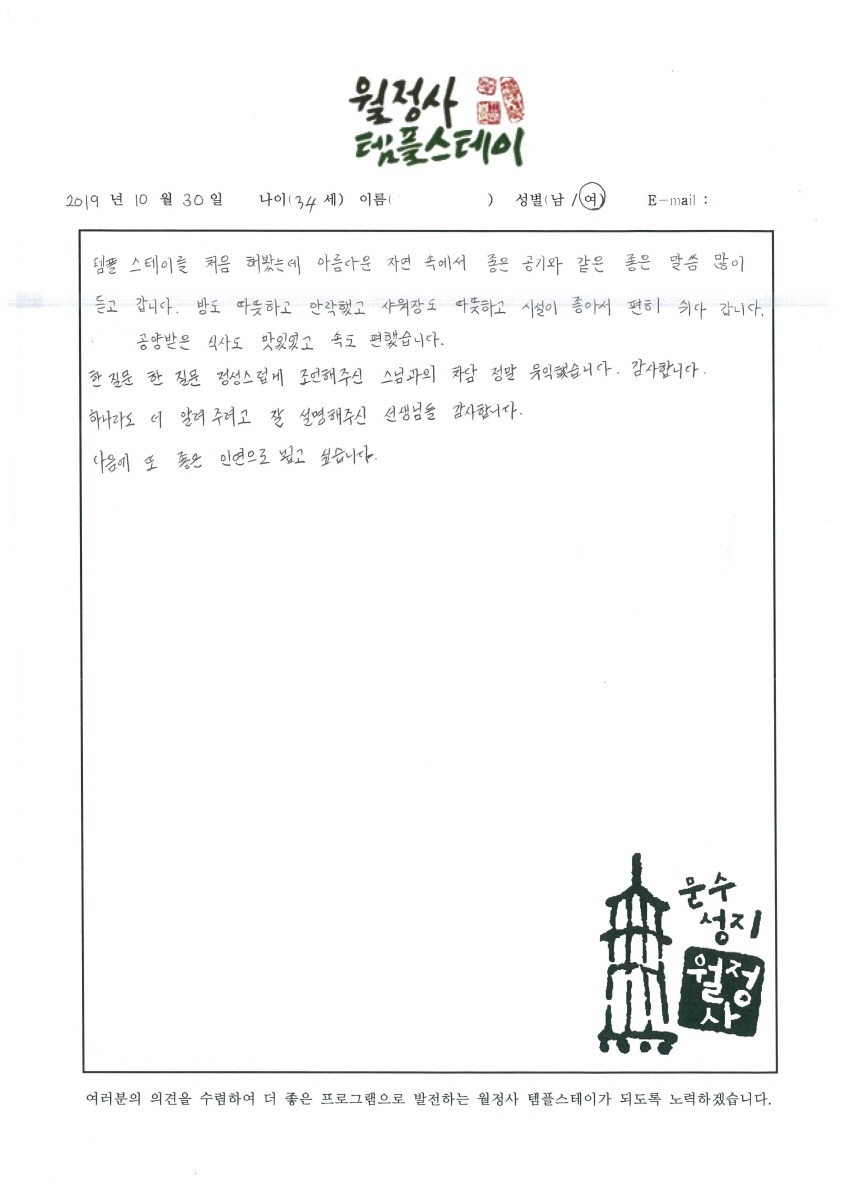 월정사
템플스테이
2019 년 10 월 30 일 나이(34 세) 이름( ) 성별(남 / 여) E-mail :
템플 스테이를 처음 해봤는데 아름다운 자연 속에서 좋은 공기와 같은 좋은 말씀 많이
듣고 갑니다. 방도 따뜻하고 안락했고 샤워장도 따뜻하고 시설이 좋아서 편히 쉬다 갑니다.
공양받은 식사도 맛있었고 속도 편했습니다.
한 질문 한 질문 정성스럽게 조언해주신 스님과의 차담 정말 유익했습니다. 감사합니다.
하나라도 더 알려주려고 잘 설명해주신 선생님들 감사합니다.
다음에 또 좋은 인연으로 뵙고 싶습니다.
문수
성지
월정
사
여러분의 의견을 수렴하여 더 좋은 프로그램으로 발전하는 월정사 템플스테이가 되도록 노력하겠습니다.